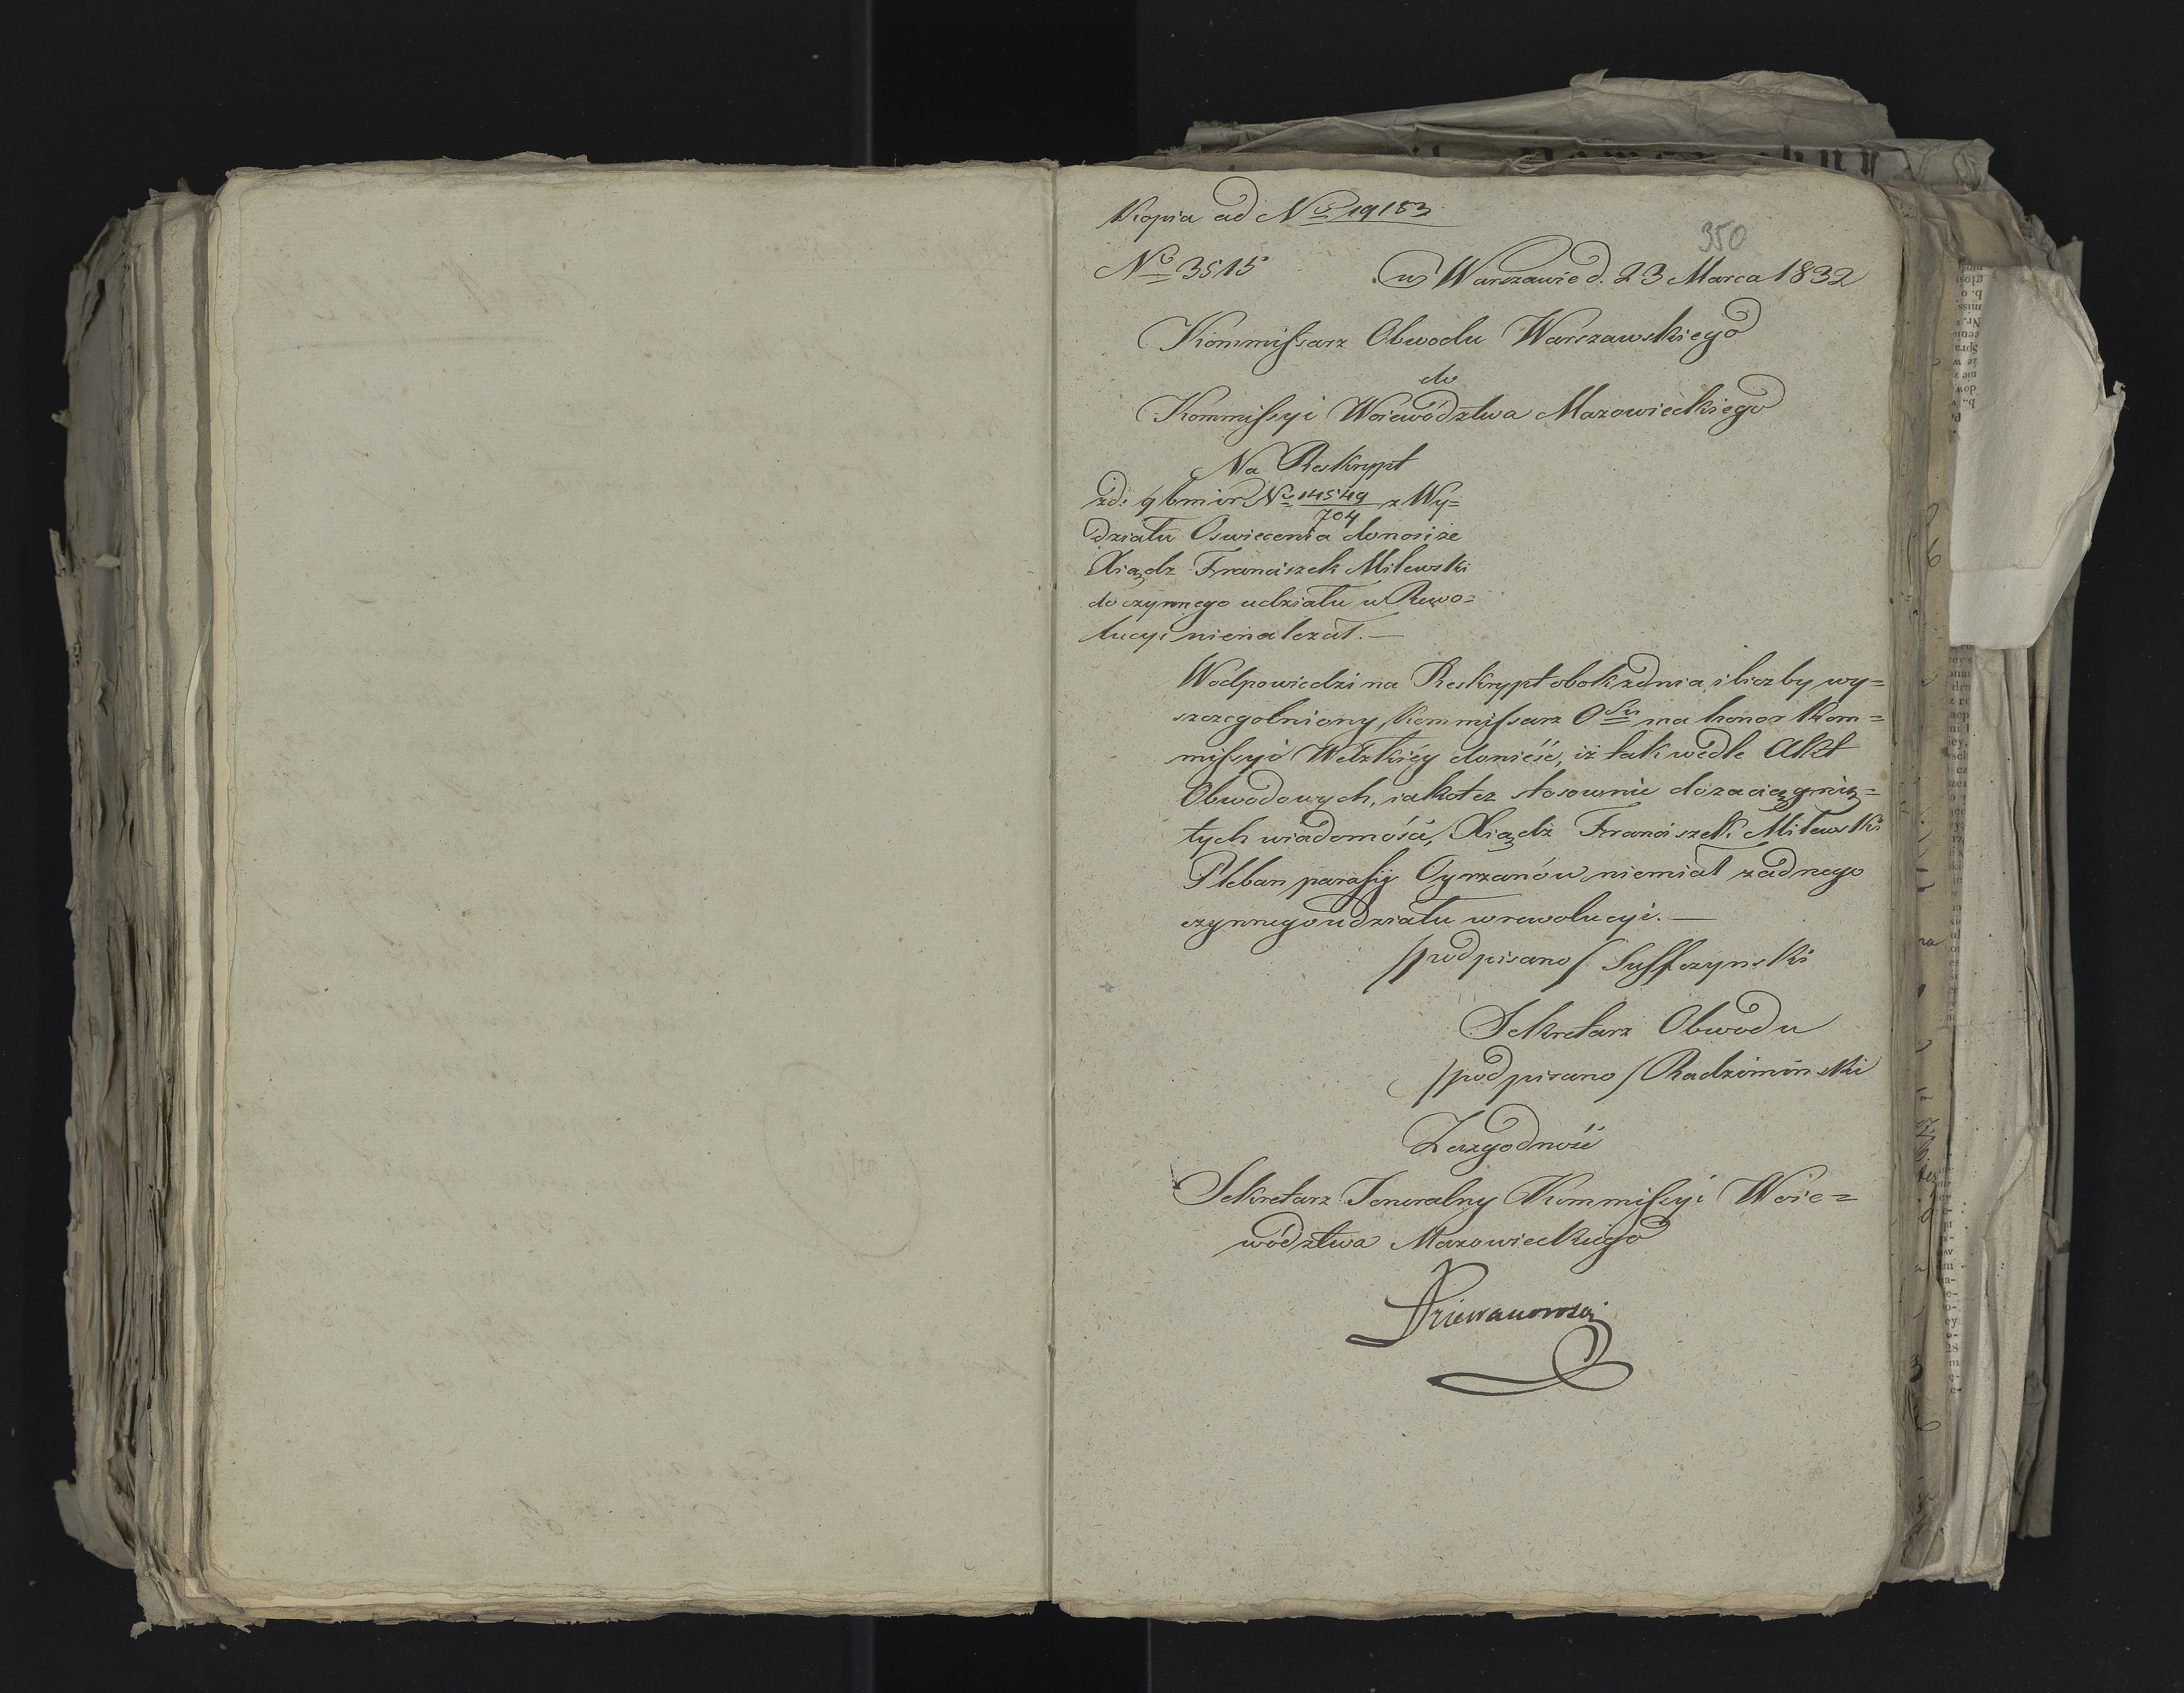 Kopia ad No 19183
350
No 3515 w Warszawie d. 23 Marca 1832
Kommissarz Obwodu Warszawskiego
do
Kommissyi Woiewództwa Mazowieckiego
Na Reskrypt
zd: 9 b m i r No 14549/704 z Wy=
działu Oswiecenia donosi że
Xiądz Franciszek Milewski
do czynnego udziału w Rewo=
lucyi nienależał. —
W odpowiedzi na Reskrypt obok zdnia i liczby wy=
szczegolniony, Kommissarz Odu ma honor Kom=
missyi Wdzkiéy donieść, iż tak wedle Akt
Obwodowych, iakotez stosownie do zaciągnię=
tych wiadomości, Xiądz Franciszek Milewski
Pleban parafii niemiał żadnego
czynnego udziału w rewolucyi. —
/podpisano/ Suffczynski
Sekretarz Obwodu
/podpisano/ Radziminski
Za zgodność
Sekretarz Jeneralny Kommissyi Woie=
wództwa Mazowieckiego
Dziewanowski